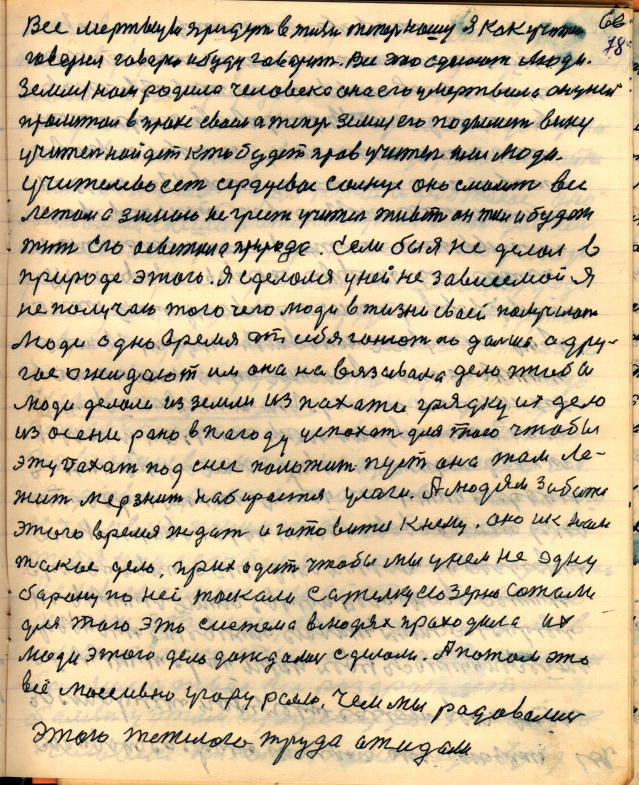 66
78
Все мертвыи придут в жизн теперношу Я как учител
говорил говорю и буду говорит. Все это сделают люди.
Земля нам родила человека она его умертвила он у ней
пролитал в прахе своем а тепер земля его подымет вину
учител найдет кто будет прав учител или люди.
Учительво ест сердцевое солнце оно смалит все
летом а зимою не греет учител живет он жил и будет
жит его осветила природа. Если бы я не делал в
природе этого. Я сделался у ней не зависемой Я
не получаю того чего люди в жизни своей получают
люди одно время от себя гонют по далше а дру-
гое ожидают им она на вязывала дело чтобы
люди делали из земли из пахати грядку их дело
из осени рано в пагоду успохат для того чтобы
эту пахат под снег положит пуст она там ле-
жит мерзнит набирается улаги. А людям забота
этого время ждат и готовится к нему. оно их там
такое дело, приходит чтобы мы у нем не одну
барону по ней таскали Сателкуслозерно Сотали
для того это система в людях праходила их
люди этого дело дождалис сделали. А потом это
всё массивно у гору расло, чем мы радовалис
этого тежелого труда ожидали